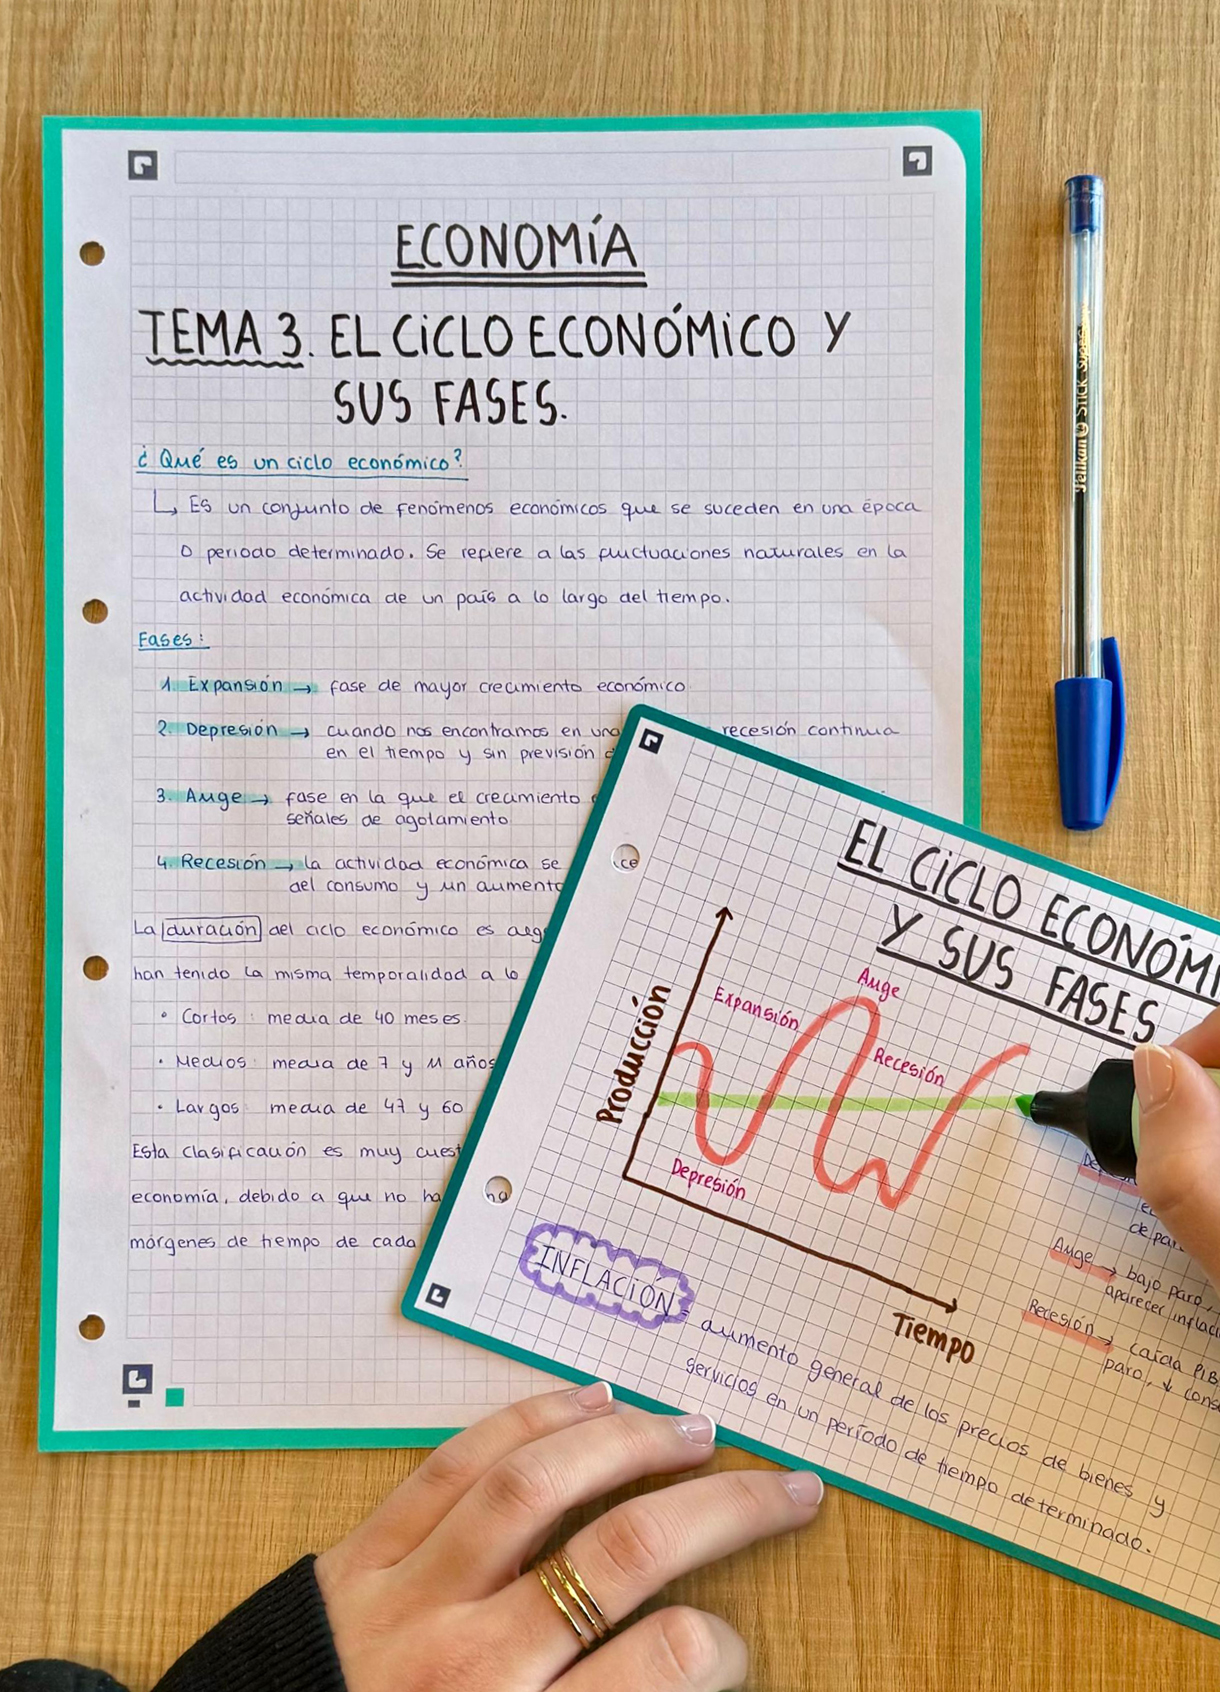 ECONOMÍA
TEMA 3. EL CICLO ECONÓMICO Y
SUS FASES.
¿Qué es un ciclo económico?
↳ Es un conjunto de fenómenos económicos que se suceden en una época
o periodo determinado. Se refiere a las fluctuaciones naturales en la
actividad económica de un país a lo largo del tiempo.
Fases:
1. Expansión → fase de mayor crecimiento económico
2. Depresión → cuando nos encontramos en una recesión continua
en el tiempo y sin previsión
3. Auge → fase en la que el crecimiento
señales de agotamiento
4. Recesión → la actividad económica se
del consumo y un aumento
La duración del ciclo económico es
han tenido la misma temporalidad a lo
• Cortos: media de 40 meses.
• Medios: media de 7 y 11 años
• Largos: media de 47 y 60
Esta clasificación es muy
economía, debido a que no
márgenes de tiempo de cada
Pelikan Stick super
EL CICLO
Y SUS FASES
Producción
Expansión
Auge
Recesión
Depresión
Tiempo
Auge → bajo paro,
aparecer
Recesión → caída PIB
paro, ↓
INFLACIÓN = aumento general de los precios de bienes y
servicios en un período de tiempo determinado.